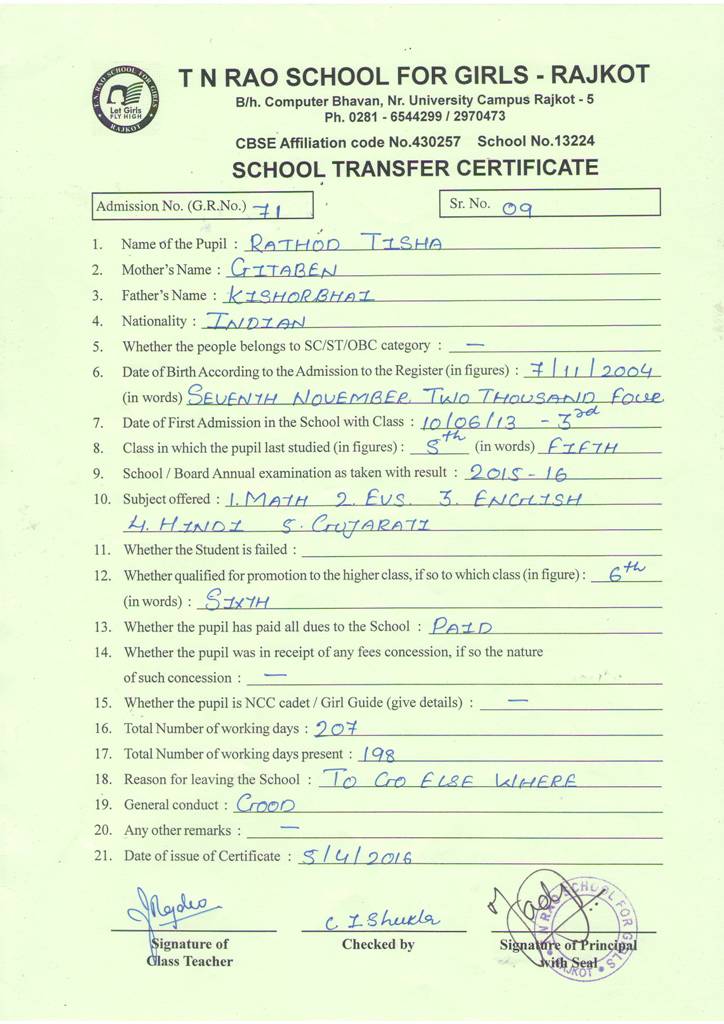 T. N. RAO SCHOOL FOR GIRLS
Let Girls
FLY HIGH
RAJKOT
T N RAO SCHOOL FOR GIRLS - RAJKOT
B/h. Computer Bhavan, Nr. University Campus Rajkot - 5
Ph. 0281 - 6544299 / 2970473
CBSE Affiliation code No.430257 School No.13224
SCHOOL TRANSFER CERTIFICATE
Admission No. (G.R.No.) 71 Sr. No. 09
1. Name of the Pupil : RATHOD TISHA
2. Mother's Name : GITABEN
3. Father's Name : KISHORBHAI
4. Nationality : INDIAN
5. Whether the people belongs to SC/ST/OBC category : —
6. Date of Birth According to the Admission to the Register (in figures) : 7/11/2004
(in words) SEVENTH NOVEMBER TWO THOUSAND FOUR
7. Date of First Admission in the School with Class : 10/06/13 - 3rd
8. Class in which the pupil last studied (in figures) : 5th (in words) FIFTH
9. School / Board Annual examination as taken with result : 2015-16
10. Subject offered : 1. MATH 2. EVS 3. ENGLISH
4. HINDI 5. GUJARATI
11. Whether the Student is failed :
12. Whether qualified for promotion to the higher class, if so to which class (in figure) : 6th
(in words) : SIXTH
13. Whether the pupil has paid all dues to the School : PAID
14. Whether the pupil was in receipt of any fees concession, if so the nature
of such concession : —
15. Whether the pupil is NCC cadet / Girl Guide (give details) : —
16. Total Number of working days : 207
17. Total Number of working days present : 198
18. Reason for leaving the School : TO GO ELSE WHERE
19. General conduct : GOOD
20. Any other remarks : —
21. Date of issue of Certificate : 5/4/2016
C I Shukla
Signature of Checked by Signature of Principal
Class Teacher with Seal
N RAO SCHOOL FOR GIRLS
RAJKOT